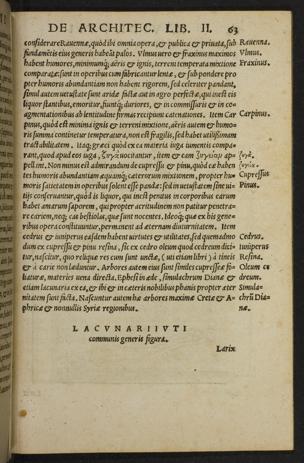 DE ARCHITEC. LIB. II. 63
considerare Rauenna, quòd ibi omnia opera, & publica & priuata, sub Rauenna.
fundamētis eius generis habeāt palos. Vlmus uero & fraxinus maximos Vlmus.
habent humores, minimumq́; aëris & ignis, terreni temperata mixtione Fraxinus.
comparatæ. sunt in operibus cum fabricantur lentæ, & sub pondere pro
pter humoris abundantiam non habent rigorem, sed celeriter pandant,
simul autem uetustate sunt aridæ factæ aut in agro perfectæ, qui inest eis
liquor stantibus, emoritur, fiuntq́; duriores, & in commissuris & in co
agmentationibus ab lentitudine firmas recipiunt catenationes. Item Car Carpinus.
pinus, quòd est minima ignis & terreni mixtione, aëris autem & humo-
ris summa continetur temperatura, non est fragilis, sed habet utilissimam
tractabilitatem. Itaq; græci quòd ex ea materia iuga iumentis compa-
rant, quod apud eos iuga, ζυγὰ uocitantur, item & eam ζυγείαν ap ζυγὰ.
pellant. Non minus est admirandum de cupressu & pinu, quòd eæ haben ζυγεία.
tes humoris abundantiam æquamq́; cæterorum mixtionem, propter hu- Cupressus
moris satietatem in operibus solent esse pandæ: sed in uetustatem sine ui- Pinus.
tijs conseruantur, quòd is liquor, qui inest penitus in corporibus earum
habet amarum saporem, qui propter acritudinem non patitur penetra-
re cariem, neq; eas bestiolas, quæ sunt nocentes. Ideoq́; quæ ex his gene-
ribus opera constituuntur, permanent ad æternam diuturnitatem. Item
cedrus & iuniperus easdem habent uirtutes & utilitates, sed quemadmo Cedrus.
dum ex cupressu & pinu resina, sic ex cedro oleum quod cedreum dici- Iuniperus
tur, nascitur, quo reliquæ res cum sunt unctæ, (uti etiam libri) à tineis Resina.
& à carie non læduntur. Arbores autem eius sunt similes cupresseæ fo- Oleum ce
liaturæ, materies uena directa. Ephesi in æde, simulachrum Dianæ & dreum.
etiam lacunaria ex ea, & ibi & in cæteris nobilibus phanis propter æter Simula-
nitatem sunt facta. Nascuntur autem hæ arbores maximè Cretæ & A- chrū Dia-
phricæ & nonnullis Syriæ regionibus. næ.
LACVNARII VTI
communis generis figura.
Larix